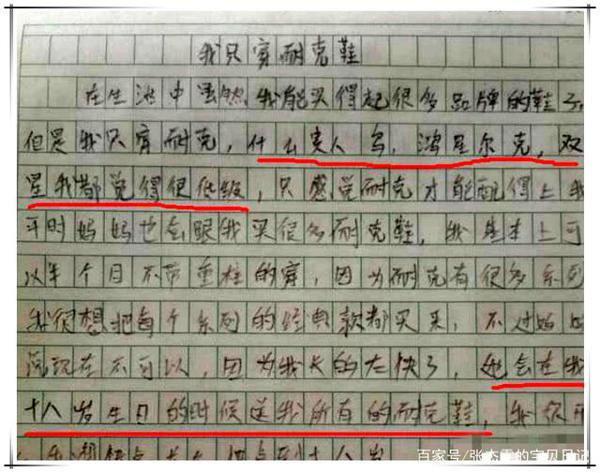 我只穿耐克鞋
在生活中虽然我能买得起很多品牌的鞋子
但是我只穿耐克，什么贵人鸟，鸿星尔克，双
星我都觉得很低级，只感觉耐克才能配得上我
平时妈妈也会跟我买很多耐克鞋，我基本上可
以半个月不带重柱的穿，因为耐克有很多系列
我很想把每个系列的经典款都买来，不过妈妈
说现在不可以，因为我长的太快了，她会在我
十八岁生日的时候送我所有的耐克鞋，我很
百家号/张杰西的宝贝日记